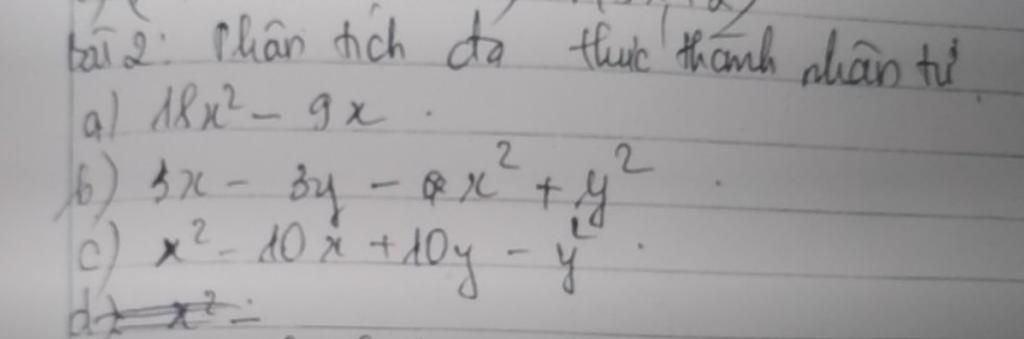 bài 2: Phân tích đa thức thành nhân tử
a) 18x² - 9x .
b) 3x - 3y - x² + y² .
c) x² - 10x + 10y - y² .
d)